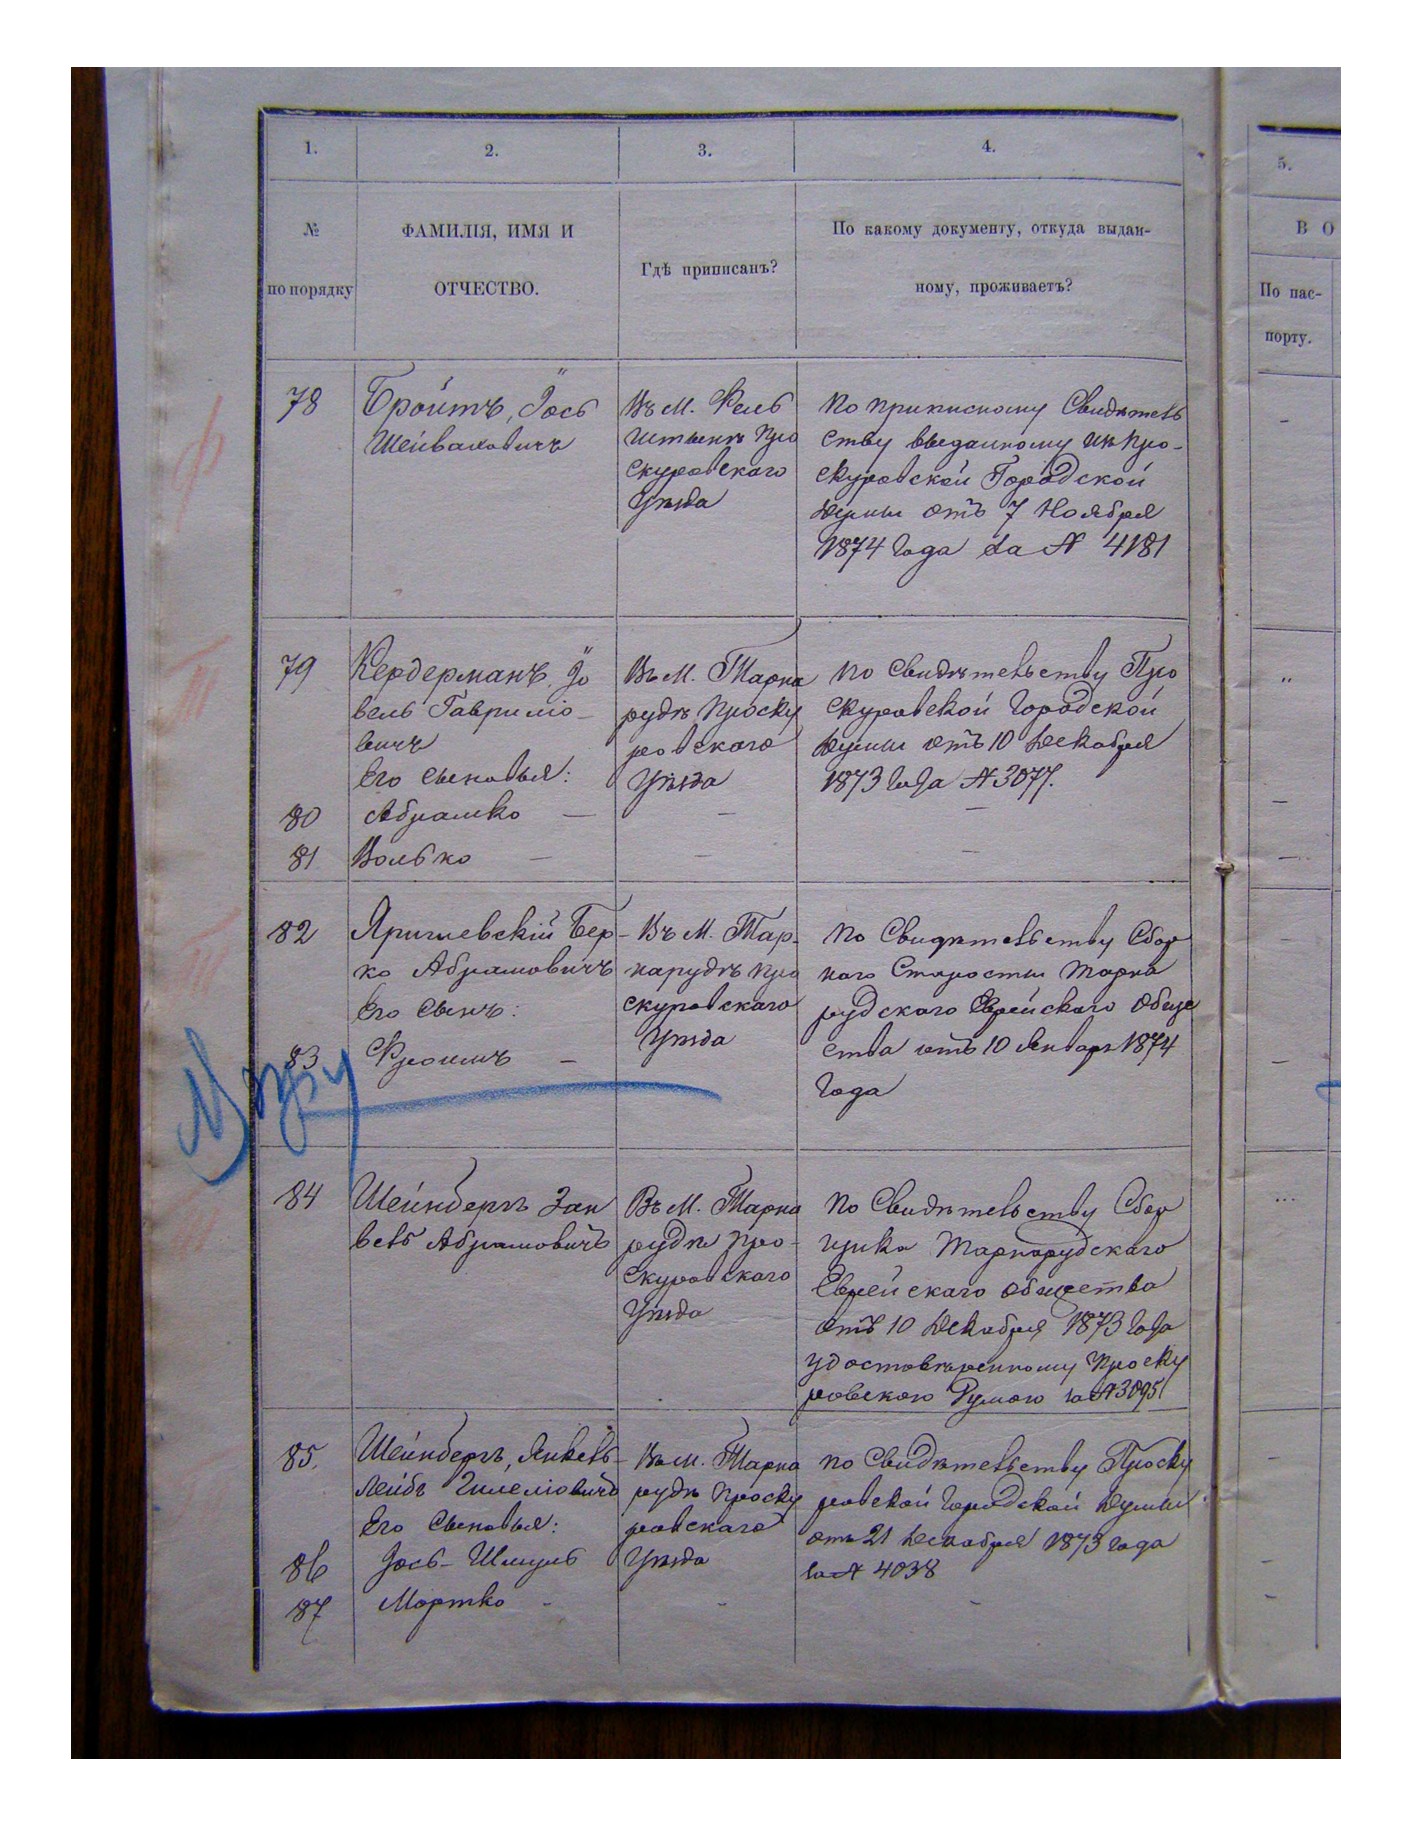 1.
2.
3.
4.
5.
№
по порядку
ФАМИЛІЯ, ИМЯ И
ОТЧЕСТВО.
Гдѣ приписанъ?
По какому документу, откуда выдан-
ному, проживаетъ?
В О
По пас-
порту.
78
Бройтъ, Іось
Шейваховичъ
Въ М. Фель
штынѣ Про
скуровскаго
Уѣзда
По приписному Свидѣтель
ству выданному изъ Про-
скуровской Городской
Думы отъ 7 Ноября
1874 года за № 4181
79
Кердерманъ Іо
вель Гавриліо-
вичъ
Его сыновья:
80 Абрамко —
81 Волько —
Въ М. Тарна
рудѣ Проску
ровскаго
Уѣзда
По Свидѣтельству Про
скуровской Городской
Думы отъ 10 Декабря
1873 года № 3077.
82
Яришевскій Бер-
ко Абрамовичъ
Его Сынъ:
83 Фроимъ —
Въ М. Тар-
нарудѣ Про
скуровскаго
Уѣзда
По Свидѣтельству Сбор
наго Старосты Тарна
рудскаго Еврейскаго Обще
ства отъ 10 Января 1874
года
84
Шейнбергъ Зан
вель Абрамовичъ
Въ М. Тарна
рудѣ Про-
скуровскаго
Уѣзда
По Свидѣтельству Сбор
щика Тарнарудскаго
Еврейскаго общества
отъ 10 Декабря 1873 года
удостовѣренному Проску
ровскою Думою за № 3095
85.
Шейнбергъ, Янкель-
Лейбъ Гилеліовичъ
Его Сыновья:
86 Іось-Шмуль
87 Мортко -
Въ М. Тарна
рудѣ Проску
ровскаго
Уѣзда
По Свидѣтельству Проску
ровской Городской Думы
отъ 21 Декабря 1873 года
за № 4038